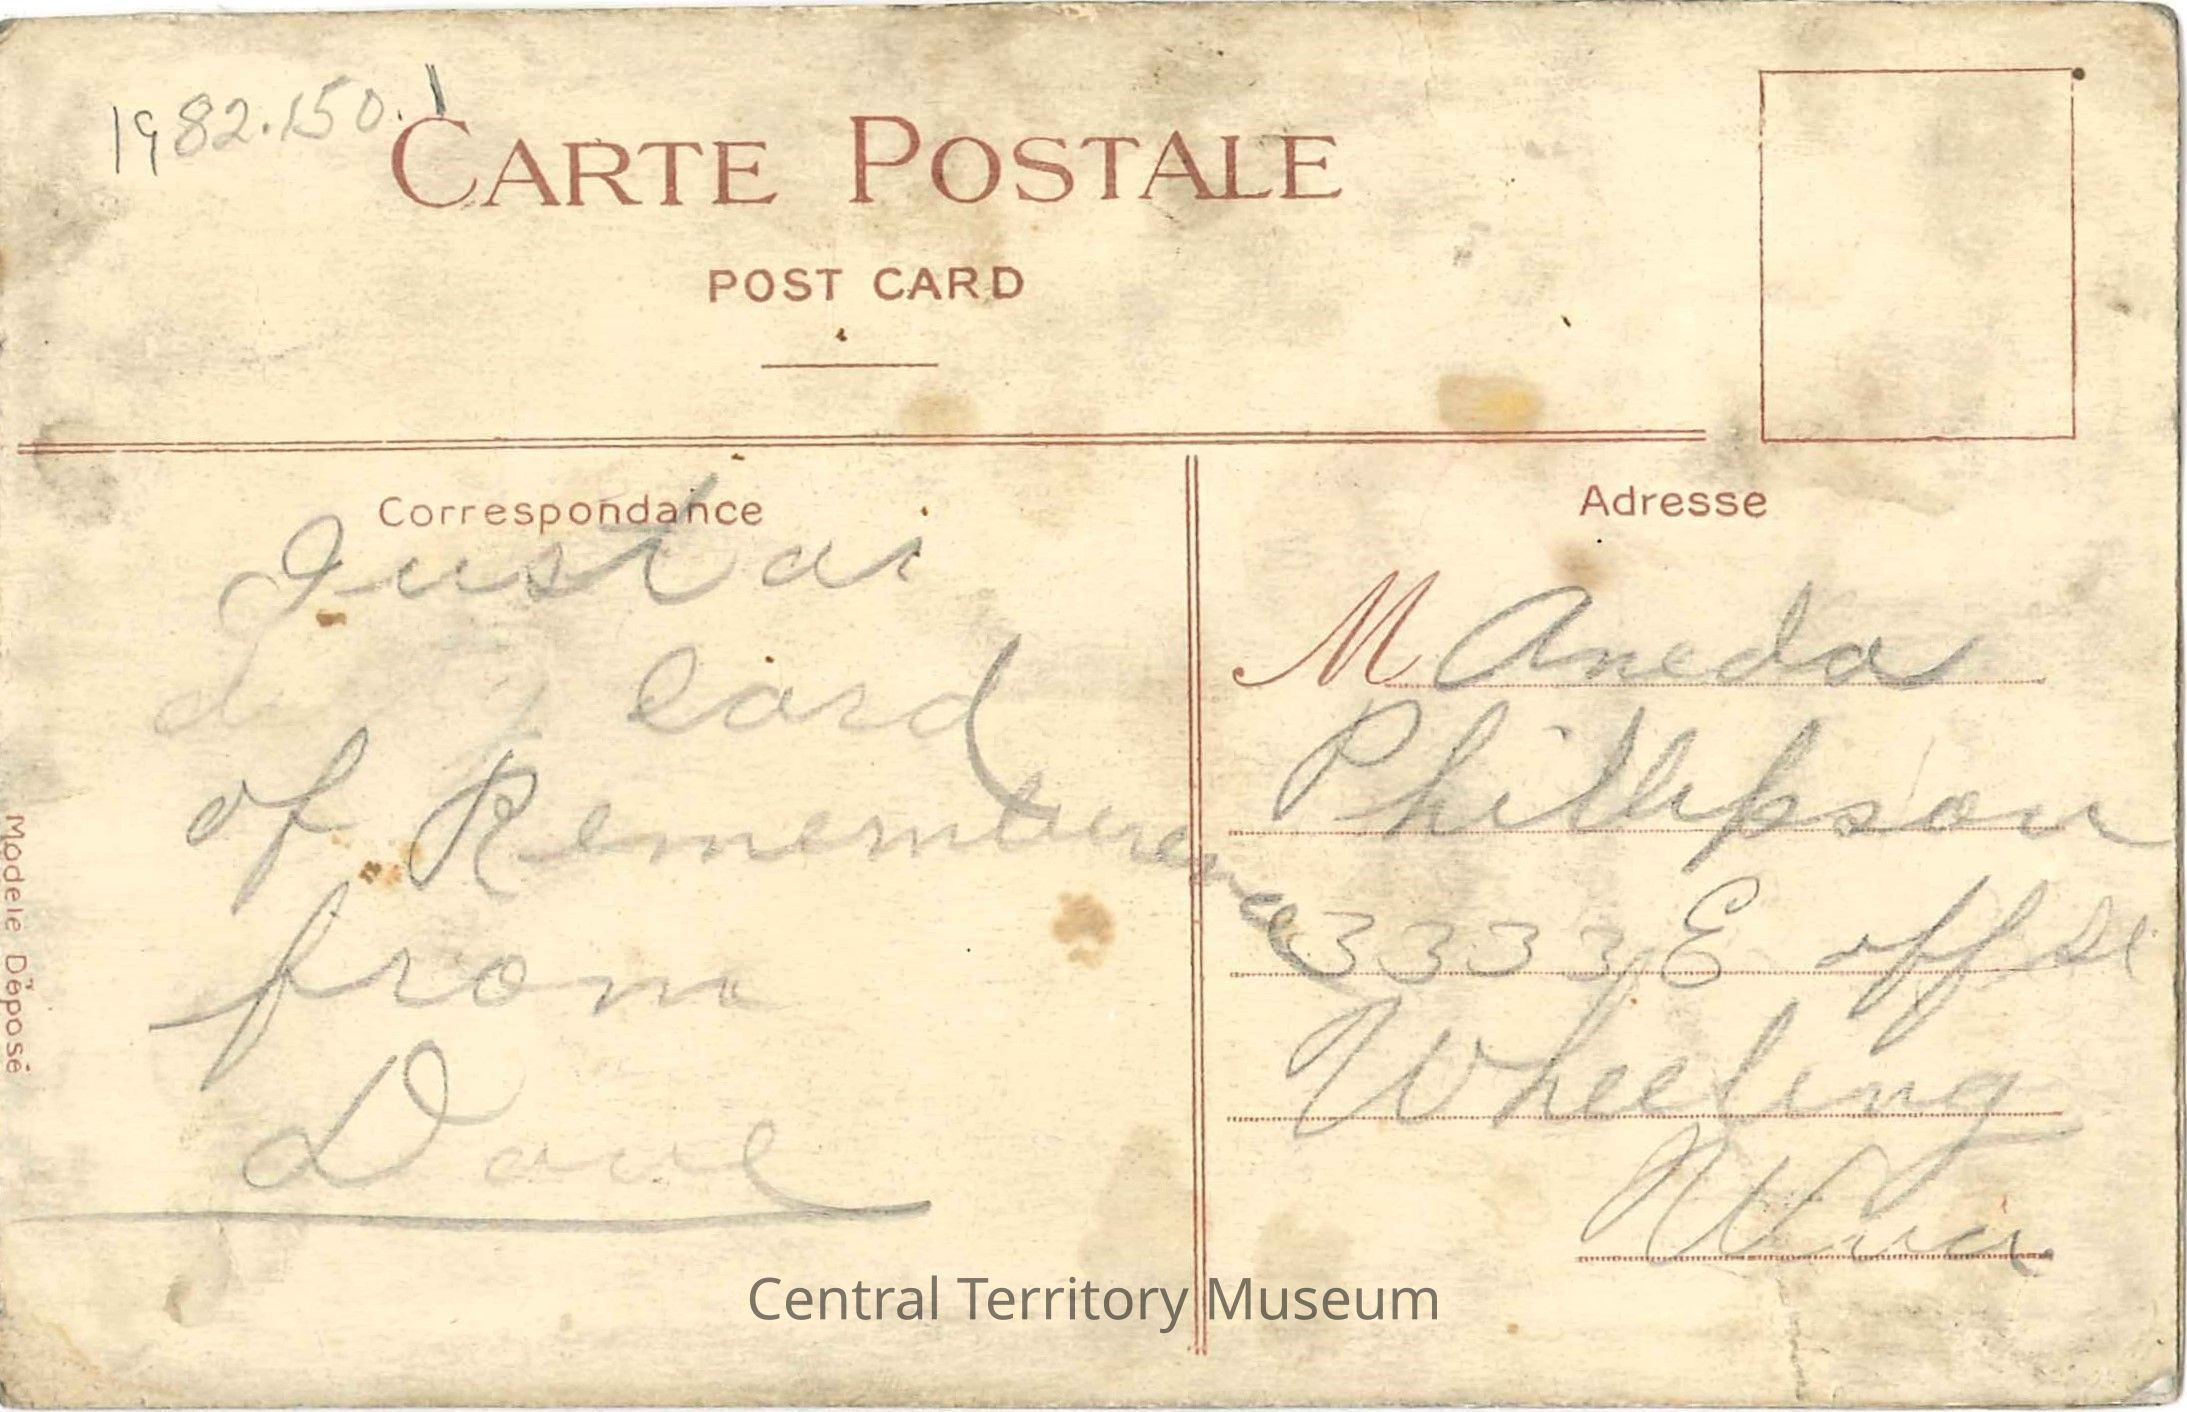 1982.150.1
CARTE POSTALE
POST CARD
Correspondance
Adresse
Just a
card
of Rememberence
from
Dave
M Aneda
Phillipson
3333 E off St
Wheeling
W Va
Modele Déposé
Central Territory Museum